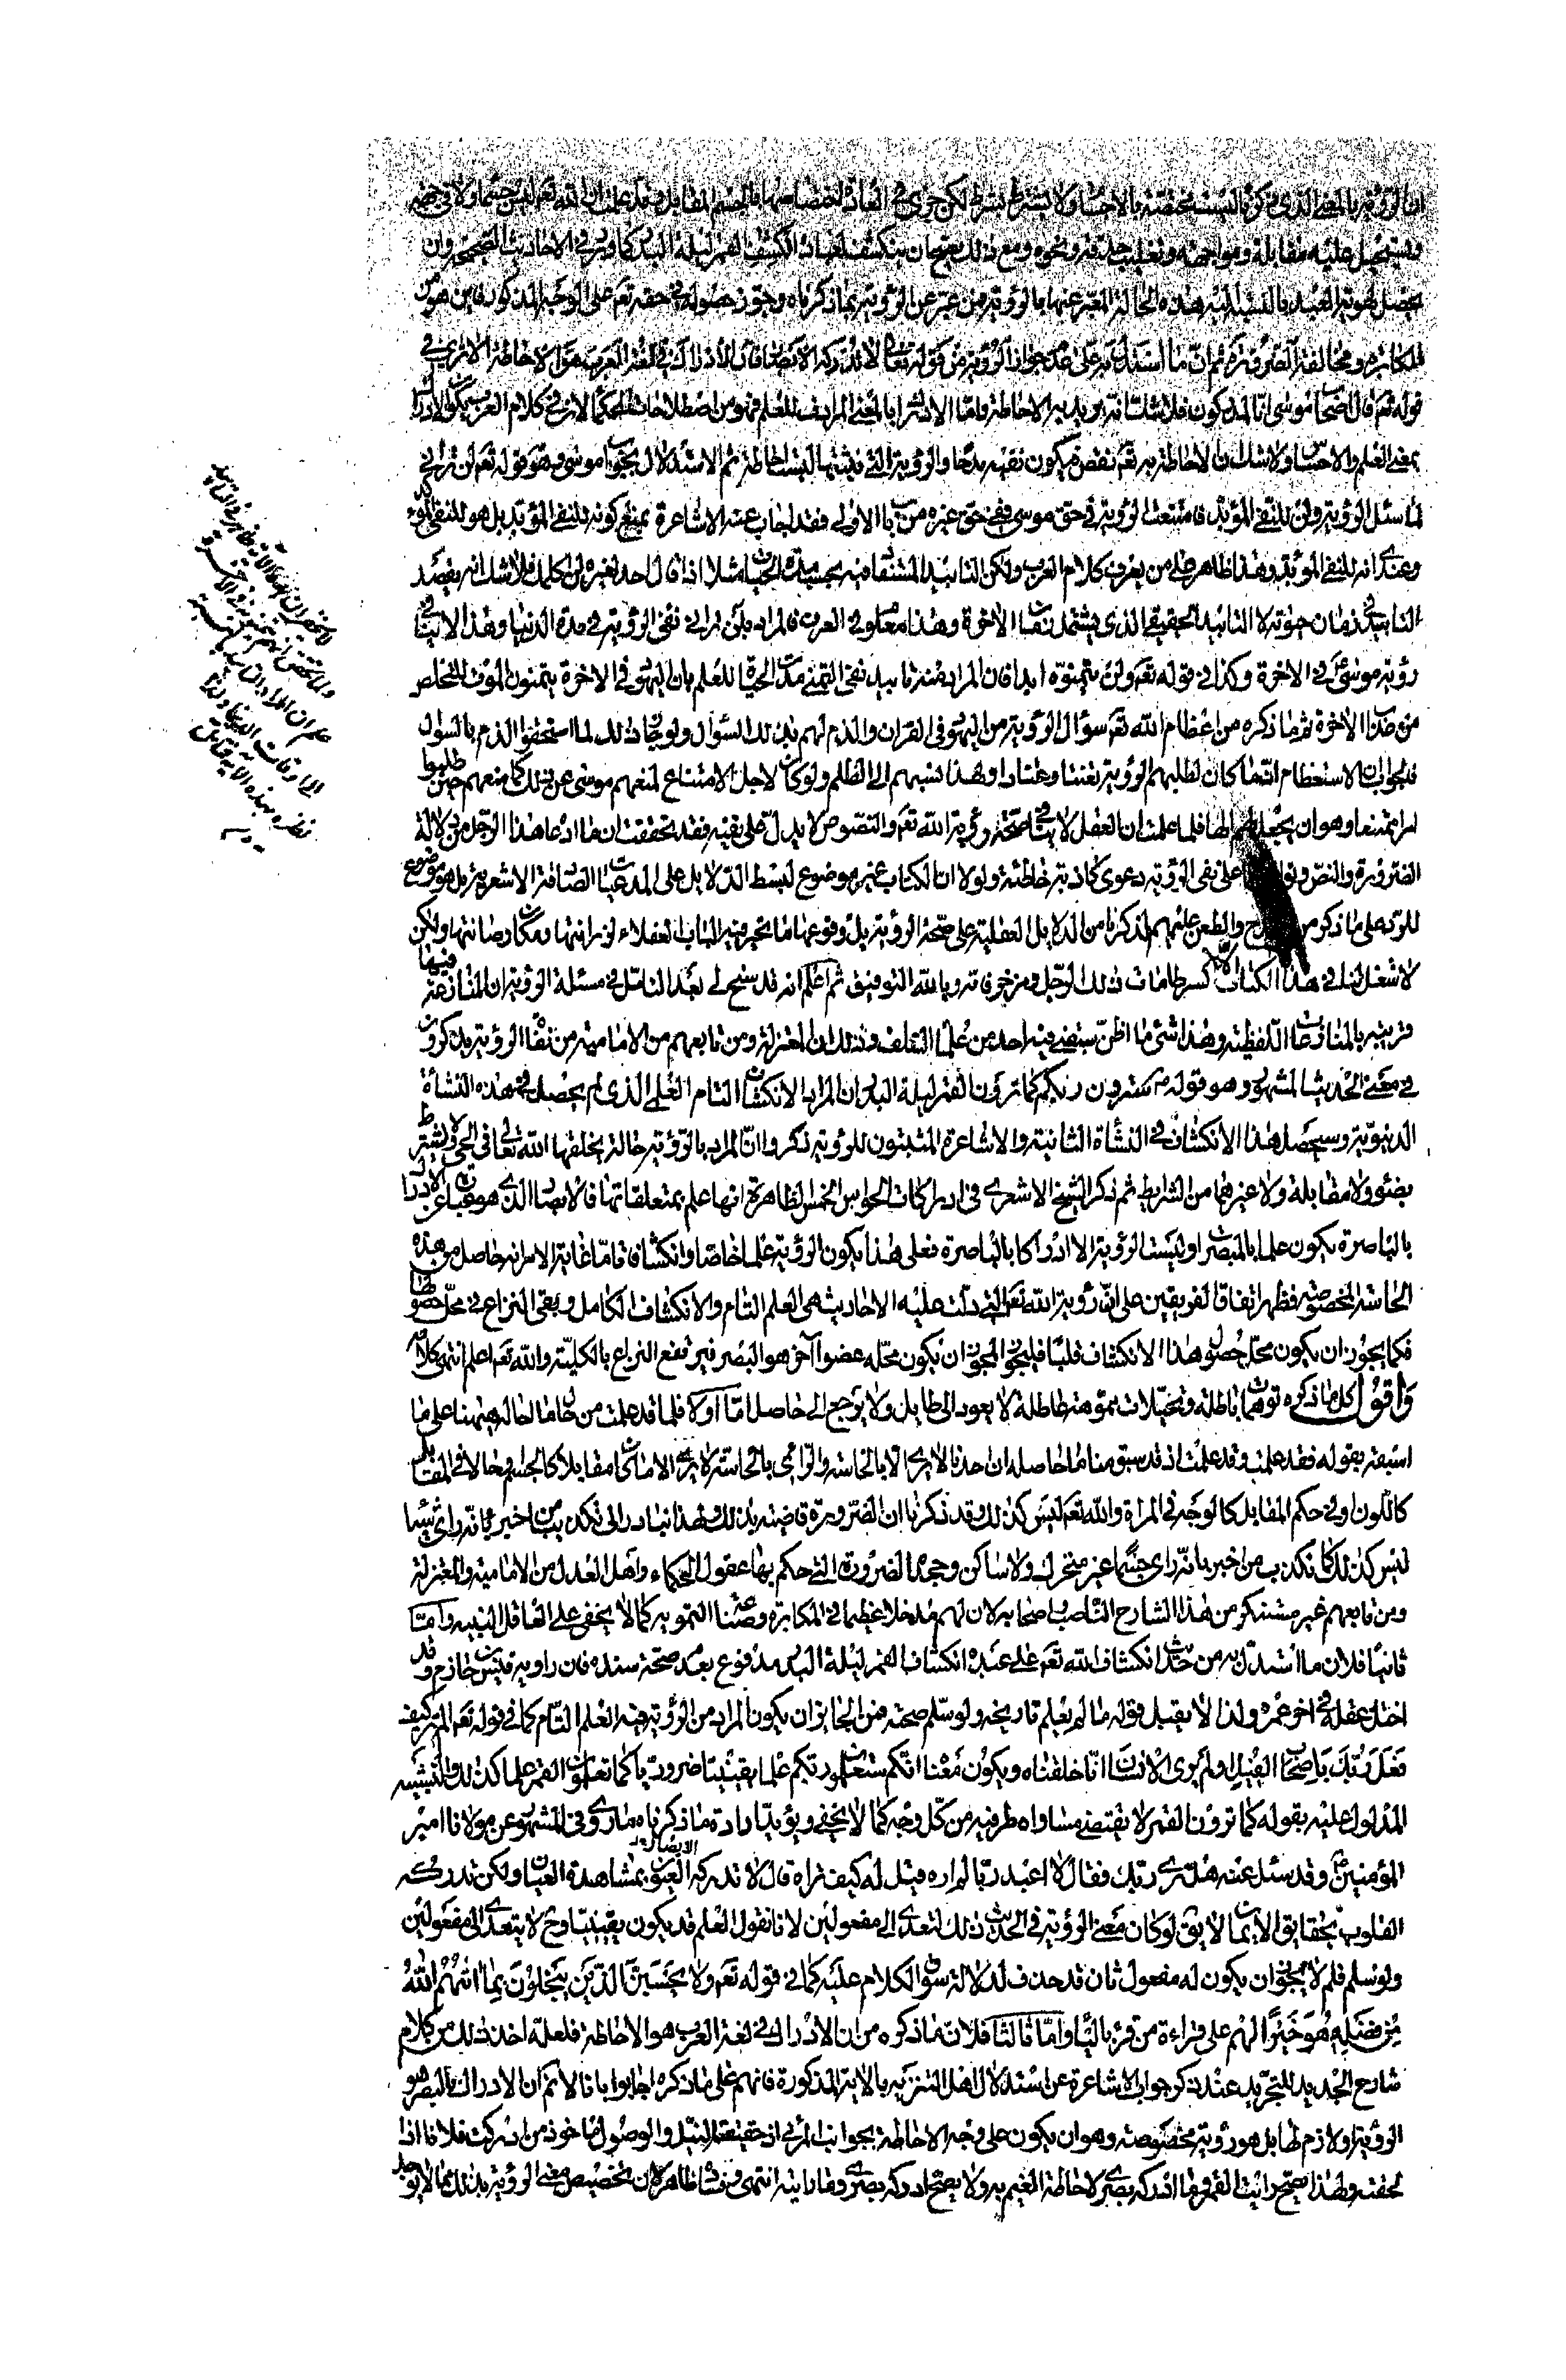 ان الرؤية بالمعنى الذي ذكرناه ليست بحقيقته بالاحساس ولا يشترط بشرط لكن جرى في العادة اختصاصها بالجسم المقابل وقد علمت ان الله تعم ليس جسما ولا في جهة
ويستحيل عليه مقابلة ومواجهة وتقليب حدقة ونحوه ومع ذلك يصح ان ينكشف لعباده انكشاف القمر ليلة البدر كما ورد في الاحاديث الصحيحة وان
يحصل لهوية العبد بالنسبة اليه هذه الحالة المعبر عنها بالرؤية فمن عبر عن الرؤية بما ذكرناه وجوز حصوله في حقه تعم على الوجه المذكور فاين هو من
المكابرة ومخالفة الضرورة ثم ان ما استدل به على عدم جواز الرؤية من قوله تعالى لا تدركه الابصار فان الادراك في لغة العرب هو الاحاطة الا ترى في
قوله تعم قال اصحاب موسى انا لمدركون فلا شك انه يريد به الاحاطة واما الادراك بالمعنى المرادف للعلم فهو من اصطلاحات الحكماء لا ان في كلام العرب يكون الادراك
بمعنى العلم والاحساس ولا شك ان الاحاطة به تعم نقص فيكون نفيه مدحا والرؤية التي نثبتها ليست احاطة ثم الاستدلال بجواب موسى وهو قوله تعم لن تراني
لما سئل الرؤية ولن للنفي المؤبد فامتنعت الرؤية في حق موسى ففي حق غيره من باب الاولى فقد اجاب عنه الاشاعرة بمنع كونه للنفي المؤبد بل هو للنفي المؤكد
وعندي انه للنفي المؤبد وهذا ظاهر على من يعرف كلام العرب ولكن التابيد المستفاد منه بحسب مدة الحيات مثلا اذا قال احد لغيره لن اكلمك فلا شك انه يقصد
التابيد في زمان حيوته لا التابيد الحقيقي الذي يشتمل زمان الاخرة وهذا معلوم في العرف فالمراد بلن تراني نفي الرؤية في مدة الدنيا وهذا لا ينافي
رؤية موسى ع في الاخرة وكذا في قوله تعم ولن يتمنوه ابدا فان المراد منه تابيد نفي التمني مدت الحيوة للعلم بان اليهود في الاخرة يتمنون الموت للتخلص
من عذاب الاخرة ثم ما ذكره من اعظام الله تعم سؤال الرؤية من اليهود في القران والذم لهم بذلك السؤال ولو جاز ذلك لما استحقوا الذم بالسؤال
فالجواب ان الاستعظام انما كان لطلبهم الرؤية تعنتا وعنادا ولهذا نسبهم الى الظلم ولو كان لاجل الامتناع لمنعهم موسى عن ذلك كما منعهم حين طلبوا
امرا ممتنعا وهو ان يجعل لهم الها فلما علمت ان العقل لا ينافي صحة رؤية الله تعم والنصوص لا يدل على نفيه فقد تحققت ان ما ادعاه هذا الرجل من دلالة
الضرورة والنص على نفي الرؤية دعوى كاذبة خاطئة ولولا ان الكتاب غير موضوع لبسط الدلايل على المدعيات الصادقة الاشعرية بل هو موضوع
للرد على ما ذكر من والطعن عليهم لذكرنا من الدلايل العقلية على صحة الرؤية بل وقوعها ما تحير فيه الباب العقلاء لرزانتها ومكان رصانتها ولكن
لا شغل لنا في هذا الكتاب الا كسر طامات ذلك الرجل ومزخرفاته وبالله التوفيق ثم اعلم انه قد سنح لي بعد التامل في مسئلة الرؤية ان المنازعة فيها
قريبة بالمنازعات اللفظية وهذا شئ ما اظن سبقني فيه احد من علماء السلف وذلك ان المعتزلة ومن تابعهم من الامامية من نفاة الرؤية يذكرون
في معنى الحديث المشهور وهو قوله ص سترون ربكم كما ترون القمر ليلة البدر ان المراد الانكشاف التام العلمي الذي لم يحصل في هذه النشأة
الدنيوية وسيحصل هذا الانكشاف في النشأة الثانية والاشاعرة المثبتون للرؤية ذكروا ان المراد بالرؤية حالة يخلقها الله تعالى في الحي ولا يشترط
بضوء ولا مقابلة ولا غيرهما من الشرايط ثم ذكر الشيخ الاشعري في ادراكات الحواس الخمس الظاهرة انها علم بمتعلقاتها فالابصار الذي هو عبارة عن الادراك
بالباصرة يكون علما بالمبصرات وليست الرؤية الا ادراكا بالباصرة فعلى هذا يكون الرؤية علما خاصا وانكشافا تاما غاية الامر انه حاصل من هذه
الحاسة المخصوصة فظهر اتفاق الفريقين على ان رؤية الله تعم التي دلت عليه الاحاديث هي العلم التام والانكشاف الكامل وبقي النزاع في محل حصولها
فكما يجوز ان يكون محل حصول هذا الانكشاف قلبا فليجوز المجوز ان يكون محله عضوا آخر هو البصر فيرتفع النزاع بالكلية والله تعم اعلم انتهى كلامه
واقول كل ما ذكره توهمات باطلة وتخيلات مموهة عاطلة لا يعود الى طايل ولا يرجع الى حاصل اما اولا فلما قد علمت من حال ما احاله ههنا على ما
اسبقه بقوله فقد علمت وقد علمت اذ قد سبق منا ما حاصله ان احدنا لا يرى الا بالحاسة والرائي بالحاسة لا يرى الا ما كان مقابلا كالجسم او حالا في المقابل
كاللون او في حكم المقابل كالوجه في المرآة والله تعم ليس كذلك وقد ذكرنا ان الضرورة قاضية بذلك ولهذا نبادر الى تكذيب من اخبر بانه راى شيئا
ليس كذلك كما نكذب من اخبر بانه راى جسما غير متحرك ولا ساكن وجحد الضرورة التي حكم بها عقول الحكماء واهل العدل من الامامية والمعتزلة
ومن تابعهم غير مستنكر من هذا الشارح الناصب واصحابه لان لهم مدخلا عظيما في المكابرة وصناعة التمويه كما لا يخفى على العاقل النبيه واما
ثانيا فلان ما استدل به من حديث انكشاف الله تعم على عبده انكشاف القمر ليلة البدر مدفوع بعد صحة سنده فان راويه قيس بن حازم وقد
اختل عقله في اخر عمره ولذا لا يقبل قوله ما لم يعلم تاريخه ولو سلم صحته فمن الجايز ان يكون المراد من الرؤية فيه العلم التام كما في قوله تعم الم تر كيف
فعل ربك باصحاب الفيل اولم ير الانسان انا خلقناه ويكون معناه انكم ستعلمون ربكم علما يقينيا ضروريا كما تعلمون القمر علما كذلك والتشبيه
المدلول عليه بقوله كما ترون القمر لا يقتضي مساواة طرفيه من كل وجه كما لا يخفى ويؤيد ارادة ما ذكرناه ما روي في المشهور عن مولانا امير
المؤمنين ع وقد سئل عنه هل ترى ربك فقال لا اعبد ربا لم اره فقيل له كيف تراه قال لا تدركه العيون بمشاهدة العيان ولكن تدركه
القلوب بحقايق الايمان لا يق لو كان معنى الرؤية في الحديث ذلك لتعدى الى مفعولين لانا نقول العلم قد يكون يقينيا وح لا يتعدى الى مفعولين
ولو سلم فلم لا يجوز ان يكون له مفعول ثان قد حذف لدلالة سوق الكلام عليه كما في قوله تعم ولا يحسبن الذين يبخلون بما اتيهم الله
من فضله هو خيرا لهم على قراءة من قرء بالياء واما ثالثا فلان ما ذكره من ان الادراك في لغة العرب هو الاحاطة فلعله اخذ ذلك من كلام
شارح الجديد للتجريد عند ذكر جواب الاشاعرة عن استدلال اهل التنزيه بالاية المذكورة فانهم على ما ذكره اجابوا بانا لا نم ان الادراك بالبصر هو
الرؤية او لازم لها بل هو رؤية مخصوصة وهو ان يكون على وجه الاحاطة بجوانب المرئي اذ حقيقته النيل والوصول ماخوذ من ادركت فلانا اذا
لحقته ولهذا يصح رايت القمر وما ادركه بصري لاحاطة الغيم به ولا يصح ادركه بصري وما رايته انتهى وفساده ظاهر لان تخصيص معنى الرؤية بذلك مما لا يوجد